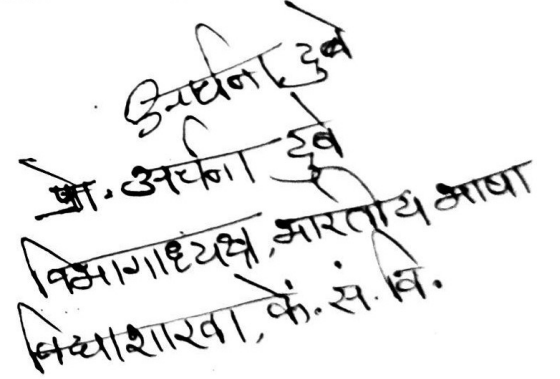 अर्चना दुबे
प्रो. अर्चना दुबे
विभागाध्यक्ष, भारतीय भाषा
विद्याशाखा, कें. सं. वि.